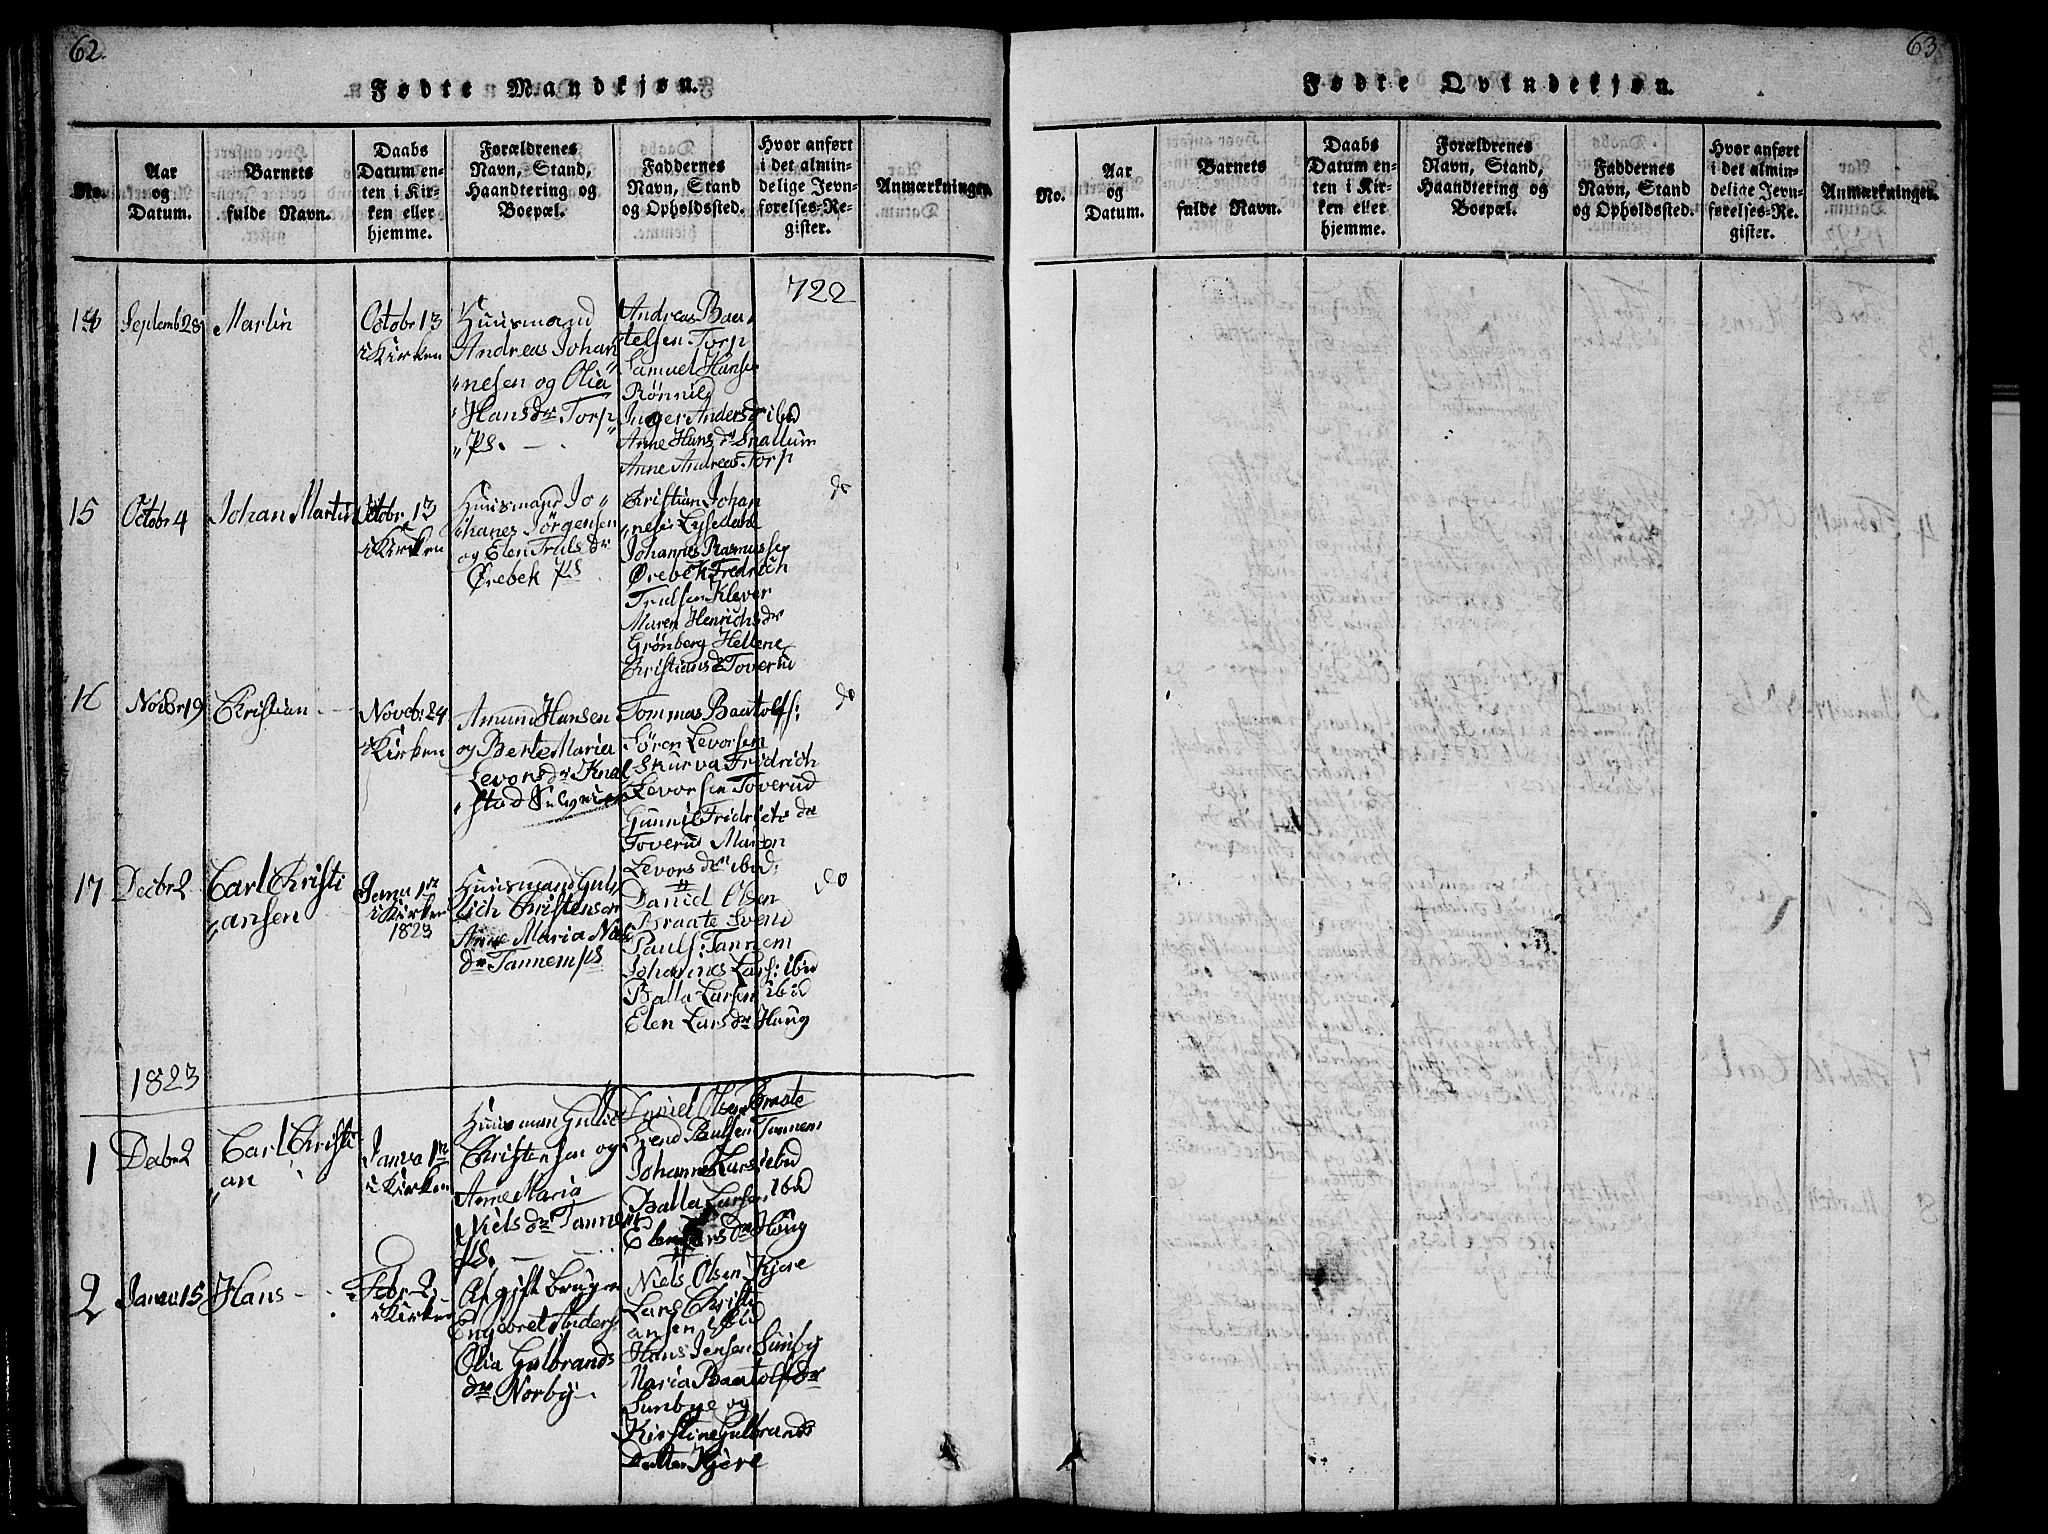 62.
Fødte Mandkjøn.
No.
Aar
og
Datum.
Barnets
fulde Navn.
Daabs
Datum en-
ten i Kir-
ken eller
hjemme.
Forældrenes
Navn, Stand,
Haandtering og
Boepæl.
Faddernes
Navn, Stand
og Opholdssted.
Hvor anført
i det almin-
delige Jevn-
førelses-Re-
gister.
Anmærkninger.
14
Septemb 28
Martin
Octobr 13
i Kirken
Huusmand
Andreas Johan
"nesen og Olia
Hans dr Torp
"PS.
Andreas Baar
telsen Torp
Samuel Hanse
Rønnild
Inger Anders dr ibid
Anne Hans dr Snallum
Anne Andreas Torp
722
15
Octobr 4
Johan Martin
Octobr 13
i Kirken
Huusmand Jo
hanes Jörgensen
og Elen Truls dr
Ørebek PS
Christian Johan
nesen Lysedahl
Johannes Rasmussen
Ørebek Fredrich
Trulsen Klever
Maren Henrichs dr
Grönberg Hellene
Christians dr Toverud
do
16
Novbr 19
Christian
Novebr 24
i Kirken
Amund Hansen
og Berte Maria
Levors dr Knal
"stad
Tommas Baatolfs:
Sören Levorsen
Skurva Fridrich
Levorsen Toverud
Gunnil Fridrichs dr
Toverud Maron
Levors dr ibid:
do
17
Decbr 2
Carl Christi
"ansen
Janu 1ste
i Kirken
1823
Huusmand Gul
lich Christensen
Anne Maria Niels
dr Tannem PS
Daniel Olsen
Braate Svend
Pauls: Tannem
Johannes Lars: ibid
Balla Larsen ibid
Elen Lars dr Haug
do
1823
1
Decbr 2
Carl Christi
an
Janua 1ste
i Kirken
Huusman Gullic
Christensen og
Anne Maria
Niels dr Tannem
PS.
Daniel Olsen Braate
Svend Paulsen Tannem
Johannes Lars ibid
Balla Larsen ibid
Elen Lars dr Haug
2
Janu 15
Hans
Febr 2
i Kirken
Afgift bruger
Engebret Anders
Olia Gulbrands
dr Norby
Niels Olsen Kjere
Lars Christi
ansen ibid
Hans Jensen Sunby
Maria Baatolfs dr
Sunbye og
Kirstine Gulbrands
Datter Kjere
63
Fødte Qvindekjøn.
No.
Aar
og
Datum.
Barnets
fulde Navn.
Daabs
Datum en-
ten i Kir-
ken eller
hjemme.
Forældrenes
Navn, Stand,
Haandtering og
Boepæl.
Faddernes
Navn, Stand
og Opholdssted.
Hvor anført
i det almin-
delige Jevn-
førelses-Re-
gister.
Anmærkninger.